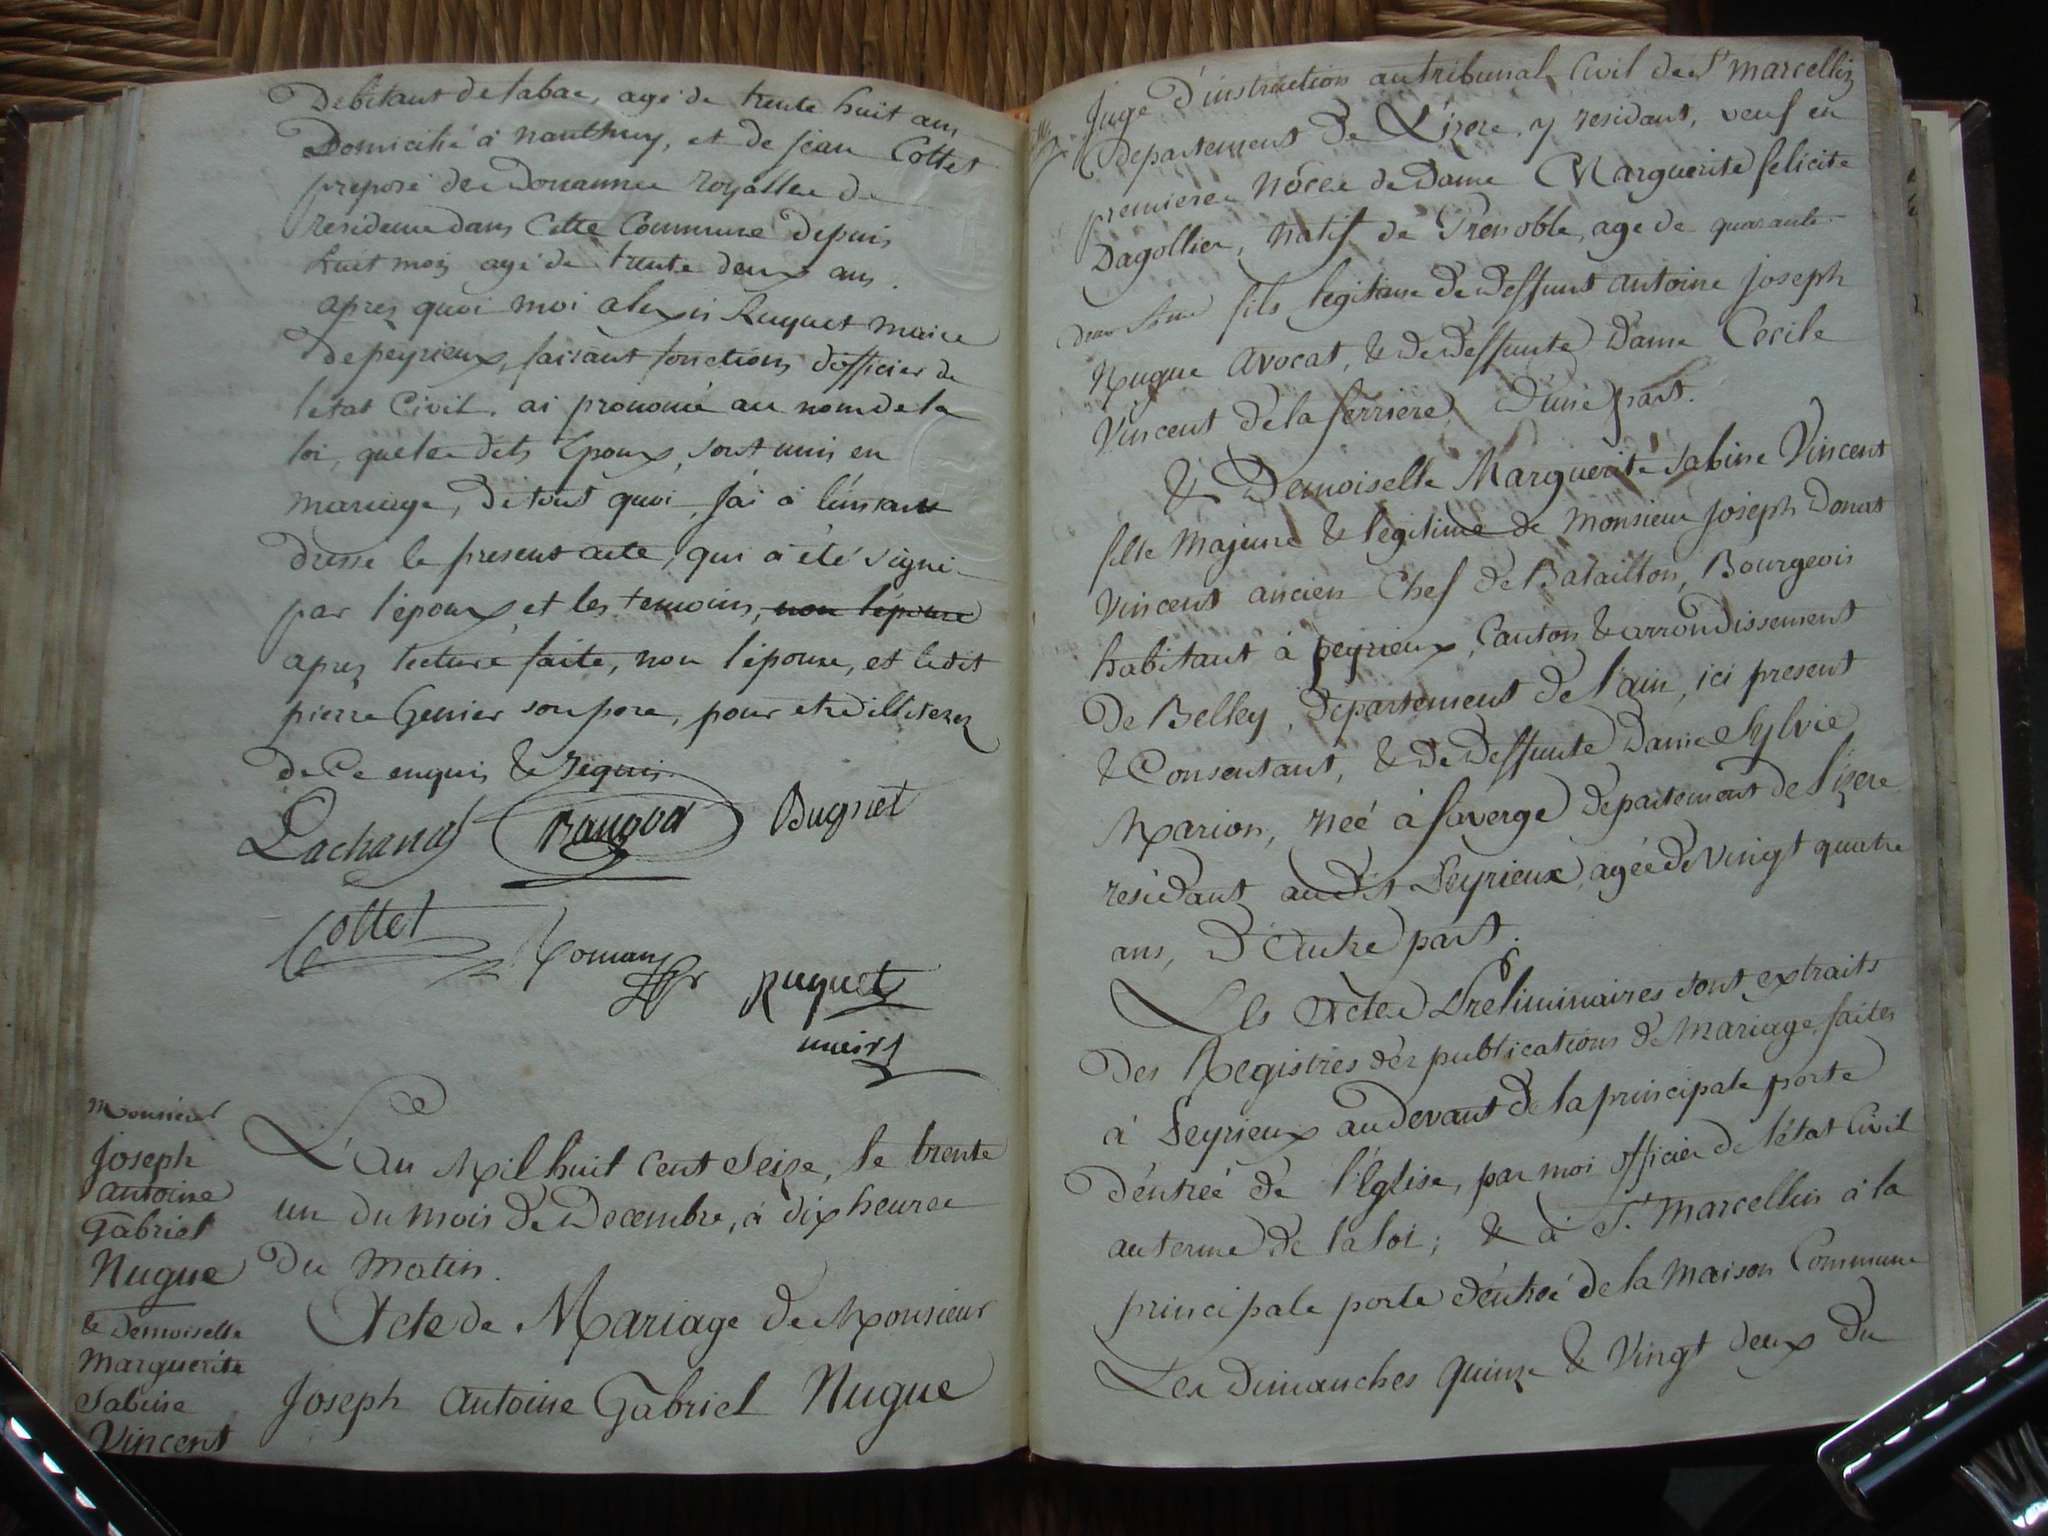 Debitant de tabac, agé de trente huit ans
Domicilié à nanthuy, et de jean Cottet
preposé des Douannes royalles de
residence dans Cette Commune depuis
huit mois agé de trente deux ans.
apres quoi moi alexis Ruquet maire
de peyrieux, faisant fonctions d'officier de
l'etat Civil. ai prononcé au nom de la
loi, que les dits Epoux, sont unis en
mariage, de tout quoi j'ai à l'instant
dressé le present acte, qui a été signé
par l'époux et les temoins, non l'épouse
apres lecture faite, non l'épouse, et ledit
pierre Genier son pere, pour etre illiterez
de Ce enquis & requis.
Dugnet
Cottet Roman Ruquet
maire
Monsieur
Joseph
antoine
Gabriel
Nugue
& Demoiselle
Marguerite
Sabine
Vincent
L'an Mil huit Cent Seize, le trente
un du mois de Decembre, à dix heures
du Matin.
Acte de Mariage de Monsieur
Joseph Antoine Gabriel Nugue
Juge D'instruction au tribunal Civil de St marcellin
departement de L'izere, y residant, veuf en
premieres Nôces de Dame Marguerite felicité
Dagollier, natif de Grenoble, age de quarante
deux ans fils legitime de deffunt antoine Joseph
Nugue Avocat, & de deffunte Dame Cecile
Vincent de la ferriere, D'une part.
& Demoiselle Marguerite Sabine Vincent
fille Majeure & legitime de Monsieur Joseph Donat
Vincent ancien Chef de Bataillon, Bourgeois
habitant à peyrieux, Canton & arrondissement
De Belley, Departement de l'ain, ici present
& Consentant, & de Deffunte Dame Sylvie
Marion, neé à faverge departement de l'izere
residant audit Peyrieux, agée de vingt quatre
ans, D'Autre part.
Les Actes Preliminaires sont extraits
Des Registres des publications de Mariage, faites
à Peyrieux au devant de la principale porte
D'entreé de l'église, par moi officier de l'état Civil
au terme de la loi; & à St Marcellin à la
principale porte d'entreé de la Maison Commune
Les dimanches quinze & vingt deux du